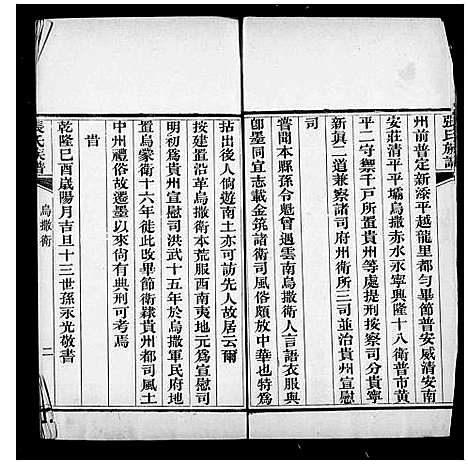 張氏族譜
州前普定新添平越龍里都匀畢節普安威清安南
安莊清平平壩烏撒赤水永寧興隆十八衛普市黃
平二守禦千戶所置貴州等處提刑按察司分貴寧
新眞二道兼察諸司府州衛所三司並治貴州宣慰
司
嘗聞本縣孫令魁曾過雲南烏撒衛人言語衣服與
卽墨同宜志載金筑諸衛司風俗頗放中華也特爲
拈出後人倘遊南土亦可訪先人故居云爾
按建置沿革烏撒衛本荒服西南夷地元爲宣慰司
明初爲貴州宣慰司洪武十五年於烏撒軍民府地
置烏蒙衛十六年徙此改畢節衛隸貴州都司風土
中州禮俗故遷墨以來尙有典刑可考焉
昔
乾隆己酉歲陽月吉旦十三世孫永光敬書
張氏族譜
烏撒衛
二